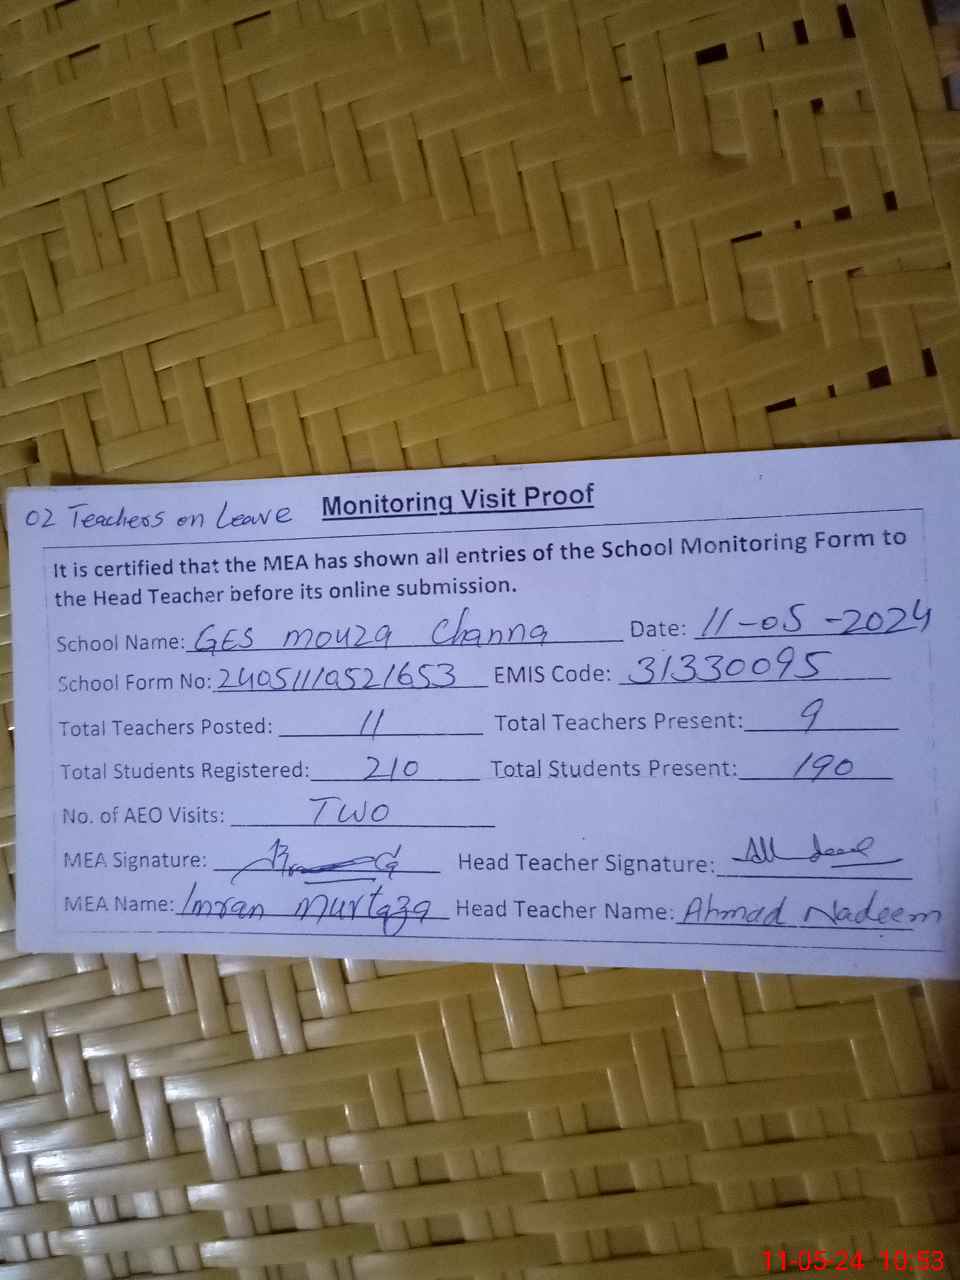 02 Teachers on Leave Monitoring Visit Proof
It is certified that the MEA has shown all entries of the School Monitoring Form to
the Head Teacher before its online submission.
School Name: GES mouza Channa Date: 11-05-2024
School Form No: 24051110521653 EMIS Code: 31330095
Total Teachers Posted: 11 Total Teachers Present: 9
Total Students Registered: 210 Total Students Present: 190
No. of AEO Visits: TWO
MEA Signature: Head Teacher Signature:
MEA Name: Imran Murtaza Head Teacher Name: Ahmad Nadeem
11-05-24 10:53